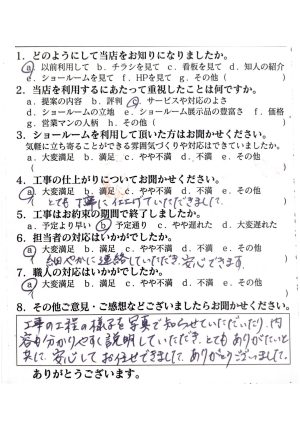 1. どのようにして当店をお知りになりましたか。
a. 以前利用して b. チラシを見て c. 看板を見て d. 知人の紹介
e. ショールームを見て f. HPを見て g. その他( )
2. 当店を利用するにあたって重視したことは何ですか。
a. 提案の内容 b. 評判 c. サービスや対応のよさ
d. ショールームの立地 e. ショールーム展示品の豊富さ f. 価格
g. 営業マンの人柄 h. その他( )
3. ショールームを利用して頂いた方はお聞かせください。
気軽に立ち寄ることができる雰囲気づくりや対応はできていましたか。
a. 大変満足 b. 満足 c. やや不満 d. 不満 e. その他
( )
4. 工事の仕上がりについてお聞かせください。
a. 大変満足 b. 満足 c. やや不満 d. 不満 e. その他
( とても丁寧に仕上げていただきました。 )
5. 工事はお約束の期間で終了しましたか。
a. 予定より早い b. 予定通り c. やや遅れた d. 大変遅れた
6. 担当者の対応はいかがでしたか。
a. 大変満足 b. 満足 c. やや不満 d. 不満 e. その他
( 細やかに連絡していただき、安心できます。 )
7. 職人の対応はいかがでしたか。
a. 大変満足 b. 満足 c. やや不満 d. 不満 e. その他
( )
8. その他ご意見・ご感想などございましたらお聞かせください。
工事の工程の様子を写真で知らせていただいたり、内
容も分かりやすく説明していただき、とてもありがたいと
共に、安心してお任せできました。ありがとうございました。
ありがとうございます。